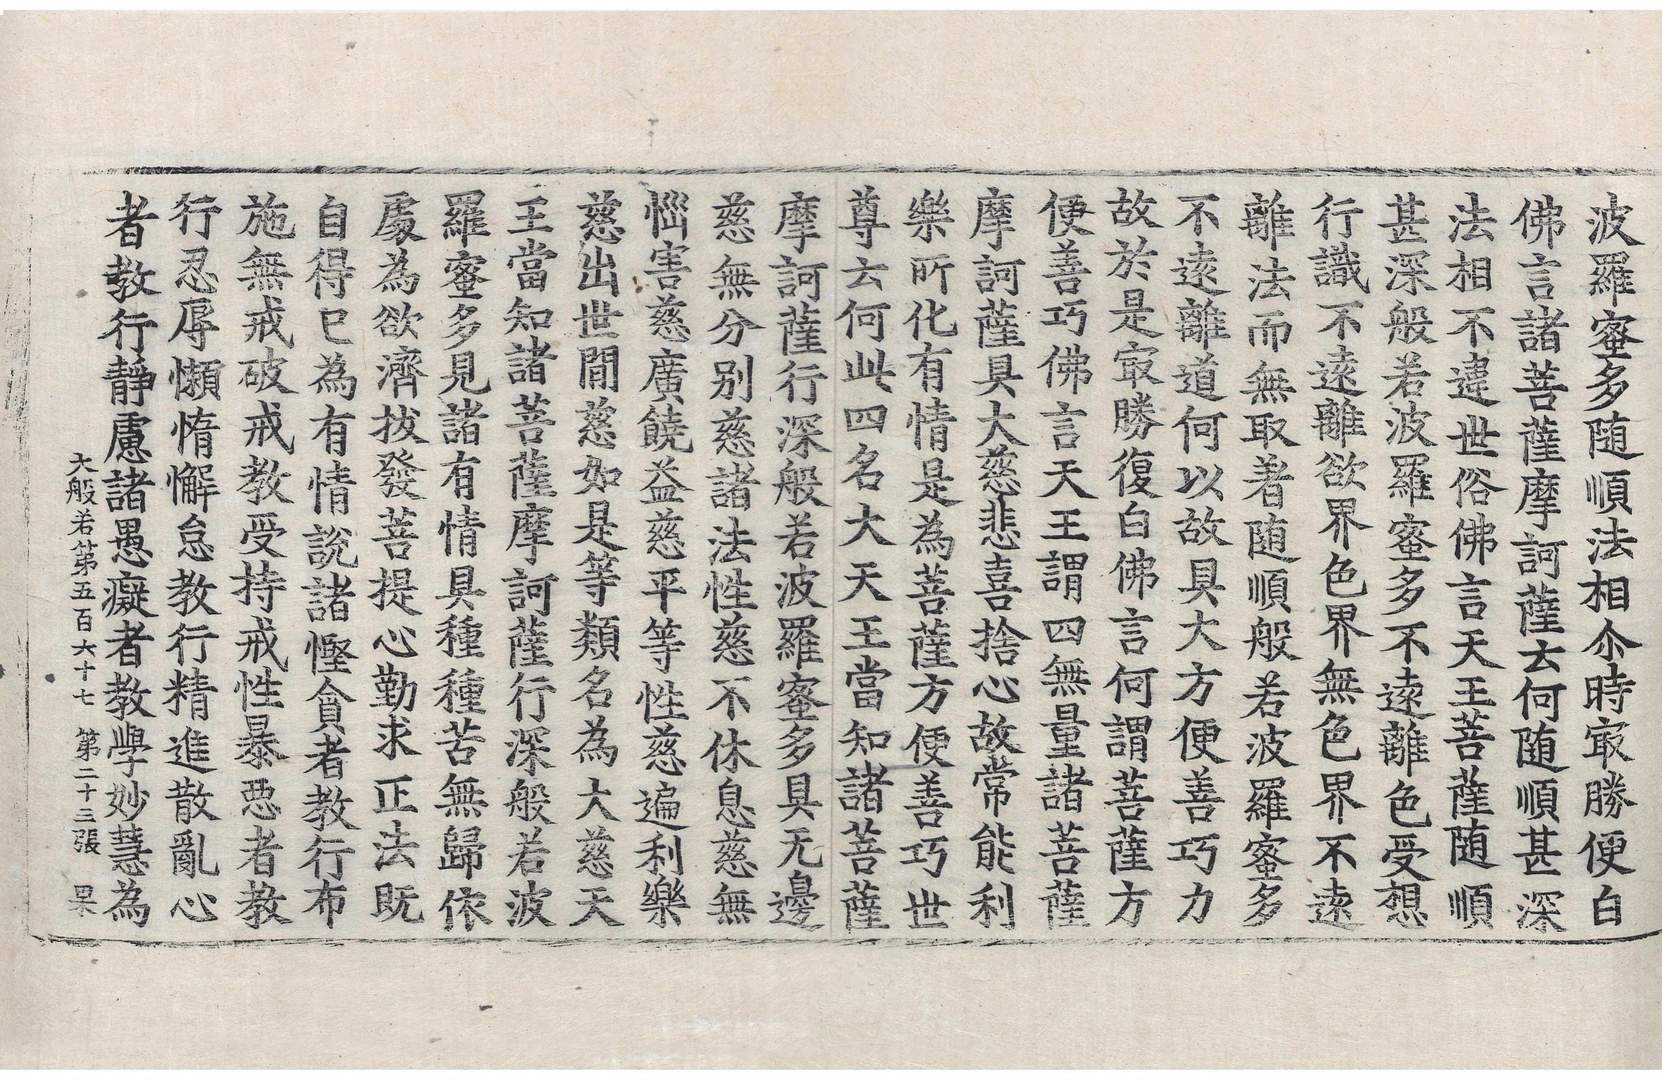 波羅蜜多随順法相尒時㝡勝便白
佛言諸菩薩摩訶薩云何随順甚深
法相不違世俗佛言天王菩薩随順
甚深般若波羅蜜多不遠離色受想
行識不遠離欲界色界無色界不遠
離法而無取著随順般若波羅蜜多
不遠離道何以故具大方便善巧力
故於是㝡勝復白佛言何謂菩薩方
便善巧佛言天王謂四無量諸菩薩
摩訶薩具大慈悲喜捨心故常能利
樂所化有情是為菩薩方便善巧世
尊云何此四名大天王當知諸菩薩
摩訶薩行深般若波羅蜜多具无邊
慈無分别慈諸法性慈不休息慈無
惱害慈廣饒益慈平等性慈遍利樂
慈出世間慈如是等類名為大慈天
王當知諸菩薩摩訶薩行深般若波
羅蜜多見諸有情具種種苦無歸依
處為欲濟拔發菩提心勤求正法既
自得已為有情說諸慳貪者教行布
施無戒破戒教受持戒性暴惡者教
行忍辱懶惰懈怠教行精進散亂心
者教行靜慮諸愚癡者教學妙慧為
大般若第五百六十七 第二十三張 果